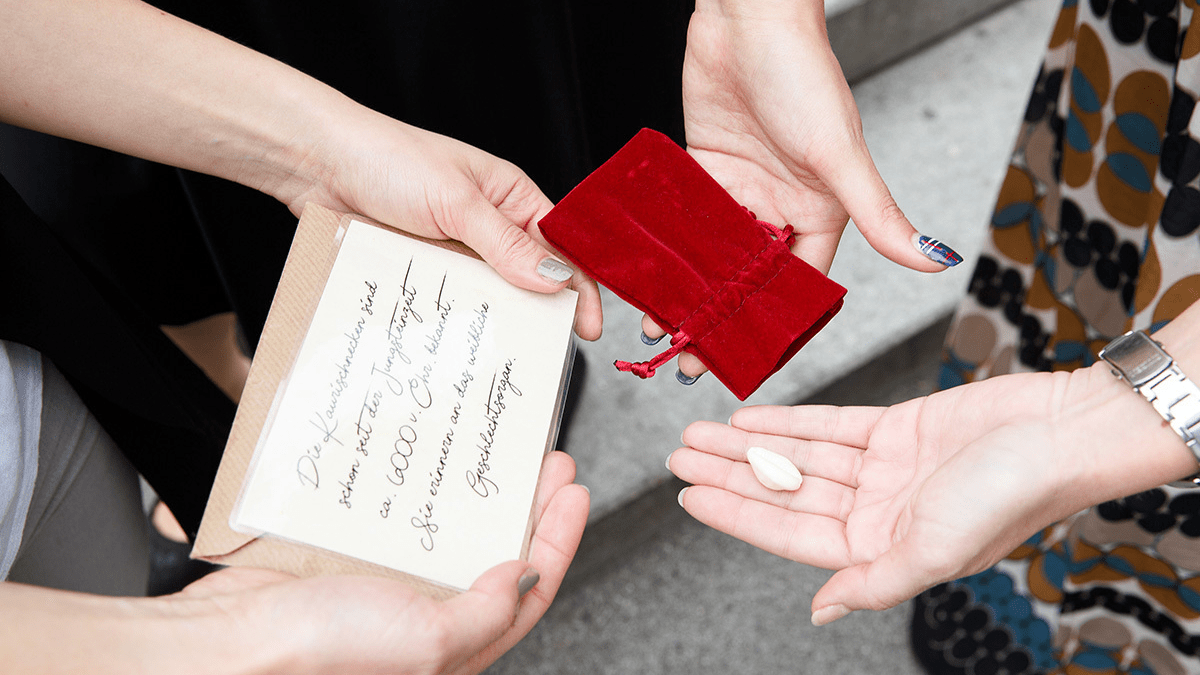 Die Kaurischnecken sind
schon seit der Jungsteinzeit
ca. 6000 v. Chr. bekannt.
Sie erinnern an das weibliche
Geschlechtsorgan.